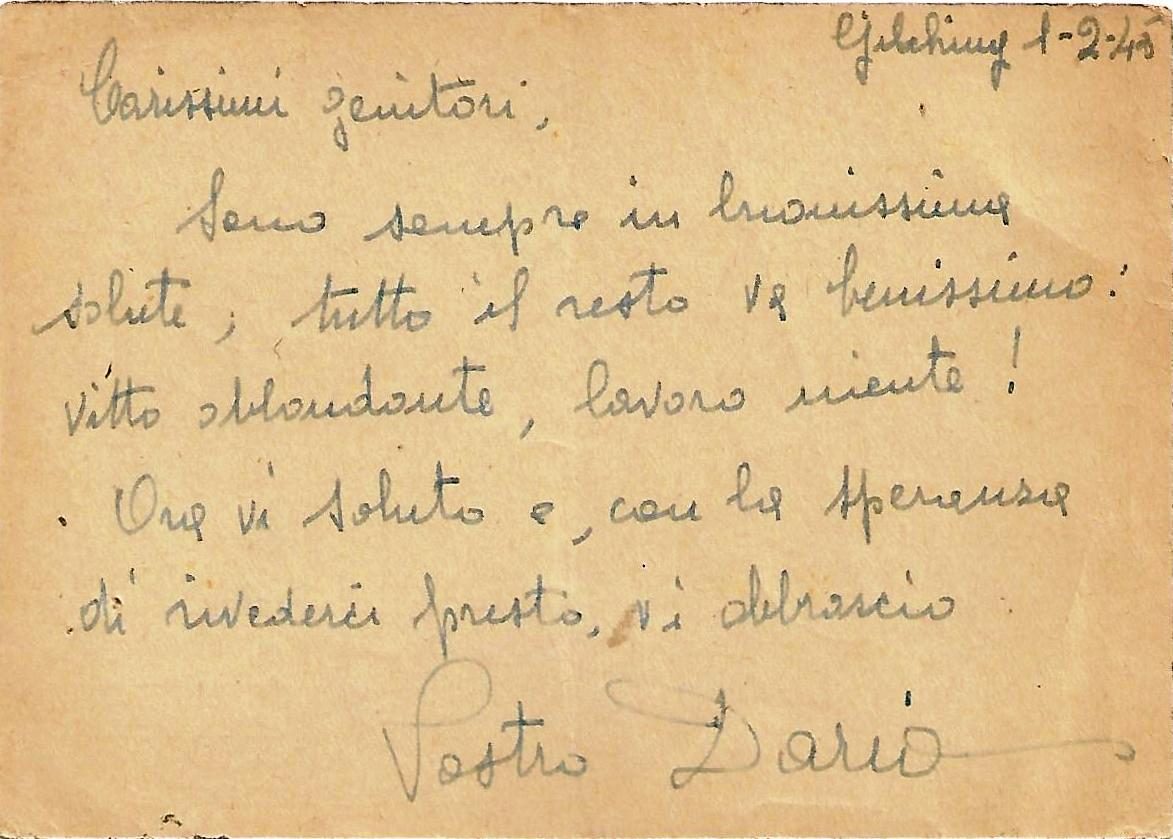 Gilching 1-2-45
Carissimi genitori,
Sono sempre in buonissima
salute, tutto il resto va benissimo:
vitto abbondante, lavoro niente!
Ora vi saluto e, con la speranza
di rivederci presto, vi abbraccio
Vostro Dario